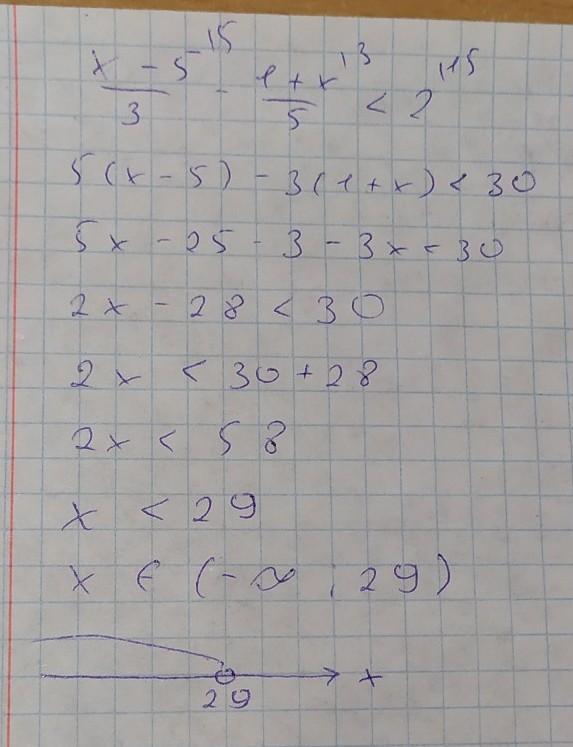 x - 5 |5 / 3 - 1 + x |3 / 5 < 2 |15
5(x - 5) - 3(1 + x) < 30
5x - 25 - 3 - 3x < 30
2x - 28 < 30
2x < 30 + 28
2x < 58
x < 29
x ∈ (-∞ ; 29)
29 x